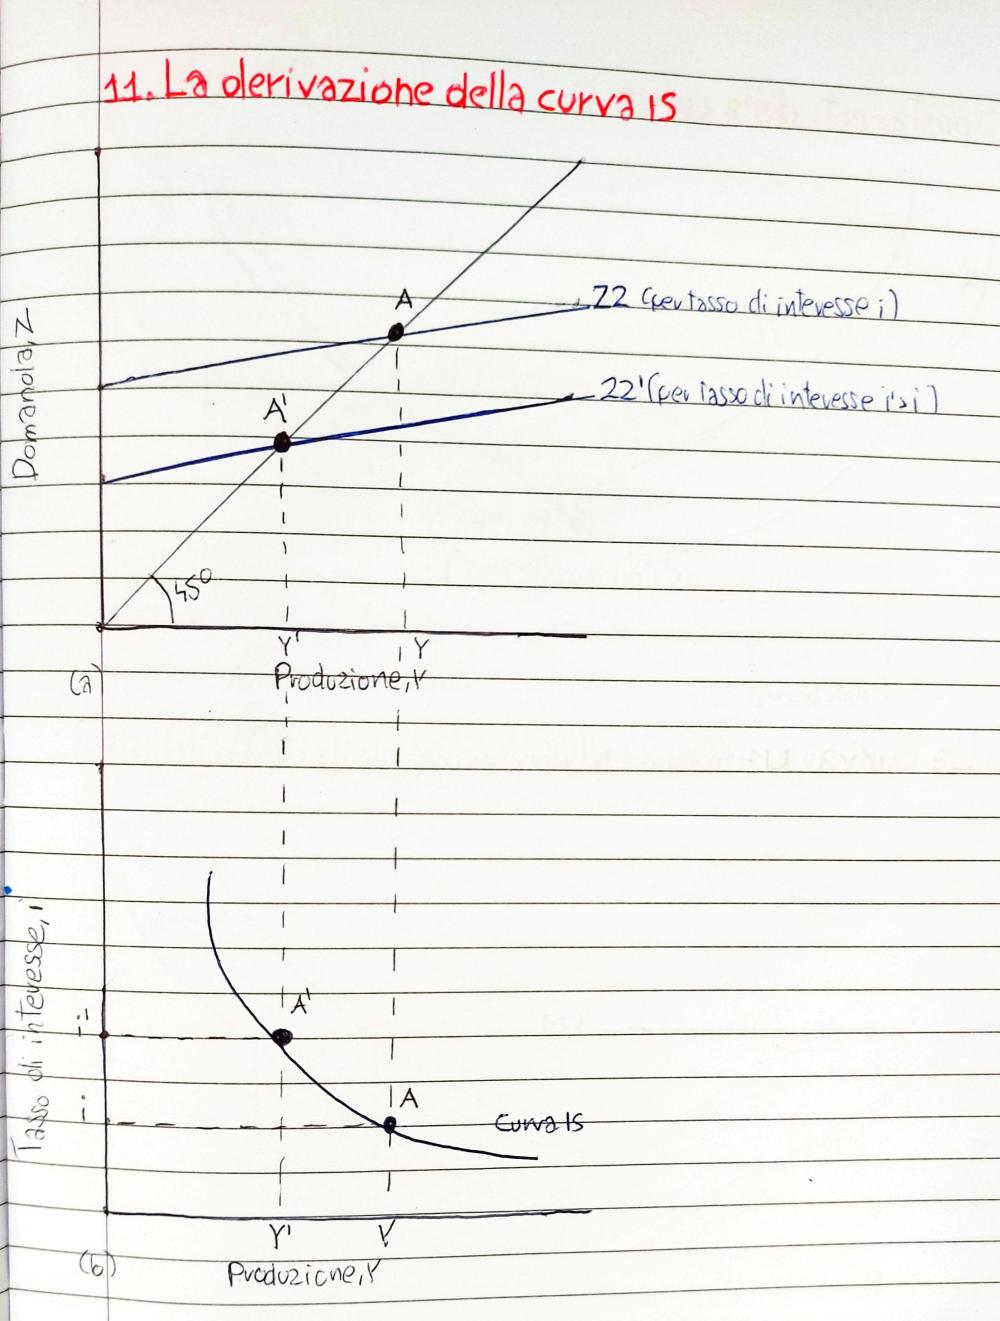 11. La derivazione della curva IS
A
ZZ (per tasso di interesse i)
Domanda, Z
A'
ZZ' (per tasso di interesse i'>i)
45°
Y' Y
Produzione, Y
(a)
Tasso di interesse, i
A'
i'
A
i
Curva IS
Y' Y
(b)
Produzione, Y